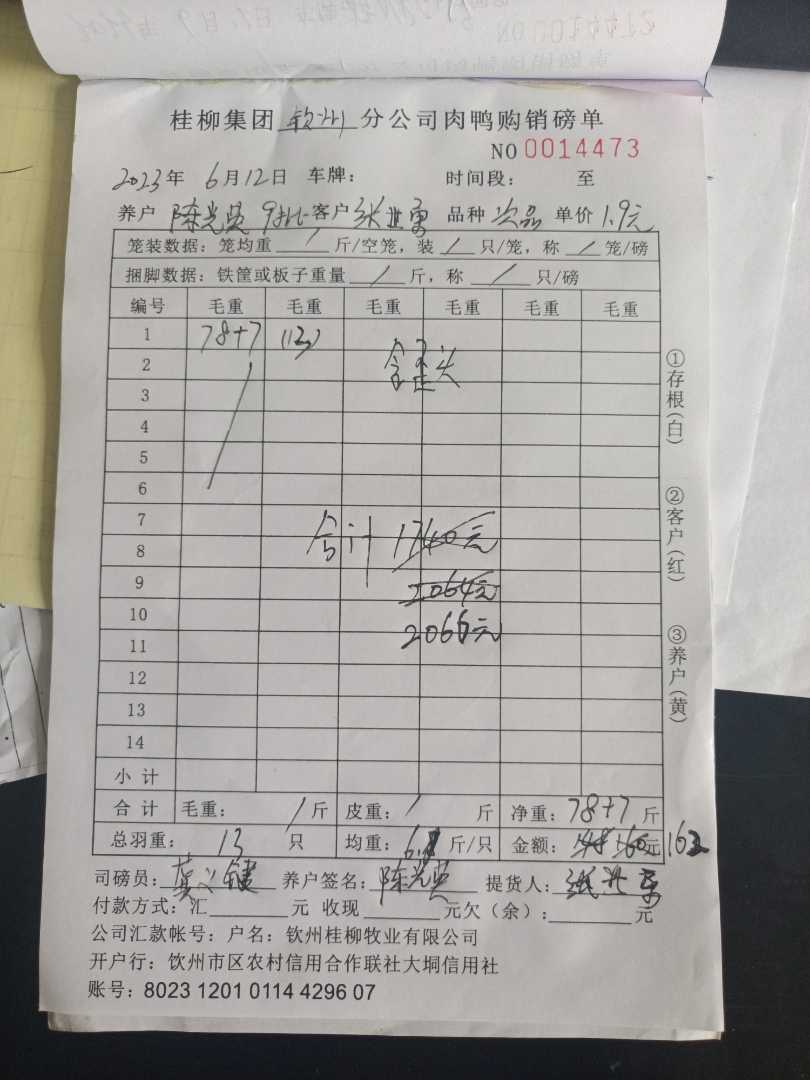 桂柳集团 钦州 分公司肉鸭购销磅单
NO 0014473
2023年 6月12日 车牌: 时间段: 至
养户 陈光英 9批 客户 张业勇 品种 次品 单价 1.9元
笼装数据: 笼均重 / 斤/空笼, 装 / 只/笼, 称 / 笼/磅
捆脚数据: 铁筐或板子重量 / 斤, 称 / 只/磅
编号 毛重 毛重 毛重 毛重 毛重 毛重
1 78+7 (13)
2 含歪头
3
4
5
6
7
8 合计 1740元
9 2064元
10 2066元
11
12
13
14
小计
合计 毛重: / 斤 皮重: / 斤 净重: 78+7 斤
总羽重: 13 只 均重: 斤/只 金额: 160元 162
司磅员: 养户签名: 陈光英 提货人: 张业勇
付款方式: 汇 元 收现 元欠(余): 元
公司汇款帐号: 户名: 钦州桂柳牧业有限公司
开户行: 钦州市区农村信用合作联社大垌信用社
账号: 8023 1201 0114 4296 07
①存根(白)
②客户(红)
③养户(黄)